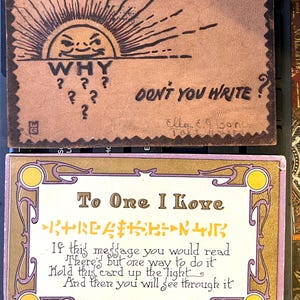 WHY
? ? ? ? ? ?
DON'T YOU WRITE?
To One I Love
If this message you would read
There's but one way to do it
Hold this card up the light
And then you will see through it